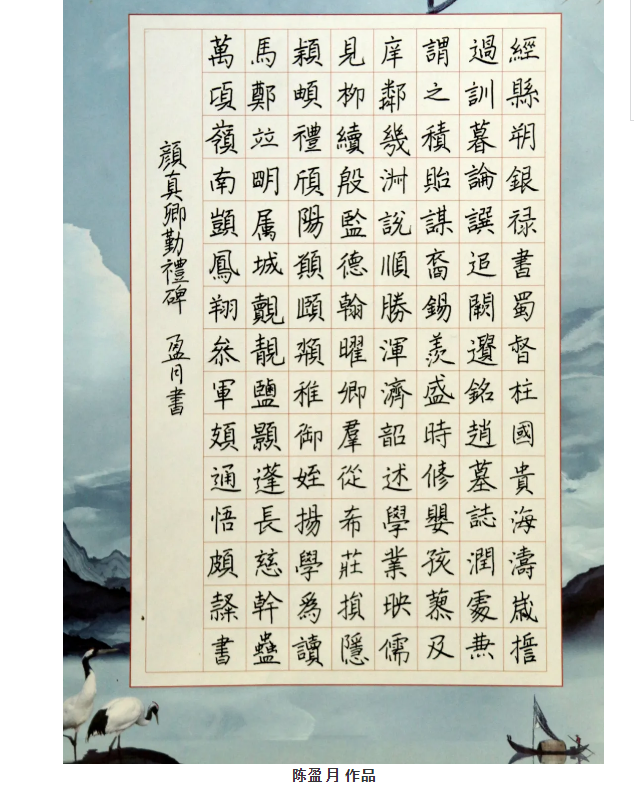 經縣朔銀祿書蜀督柱國貴海濤崴搘
過訓暮論譔追闕邆銘趙墓誌潤處無
謂之積貽謀裔錫羨盛時修嬰孩藜及
庠鄰幾洲說順勝渾濟韶述學業映儒
見柳續殷監德翰曜卿羣從希莊損隱
穎頔禮頎陽顥頤頮稚御姪揚學為讀
馬鄭竝明属城覿靚鹽顯蓬長慈幹蠱
萬頃嶺南顗鳳翔叅軍頍通悟頗書
顏真卿勤禮碑 盈月書
陈盈月 作品